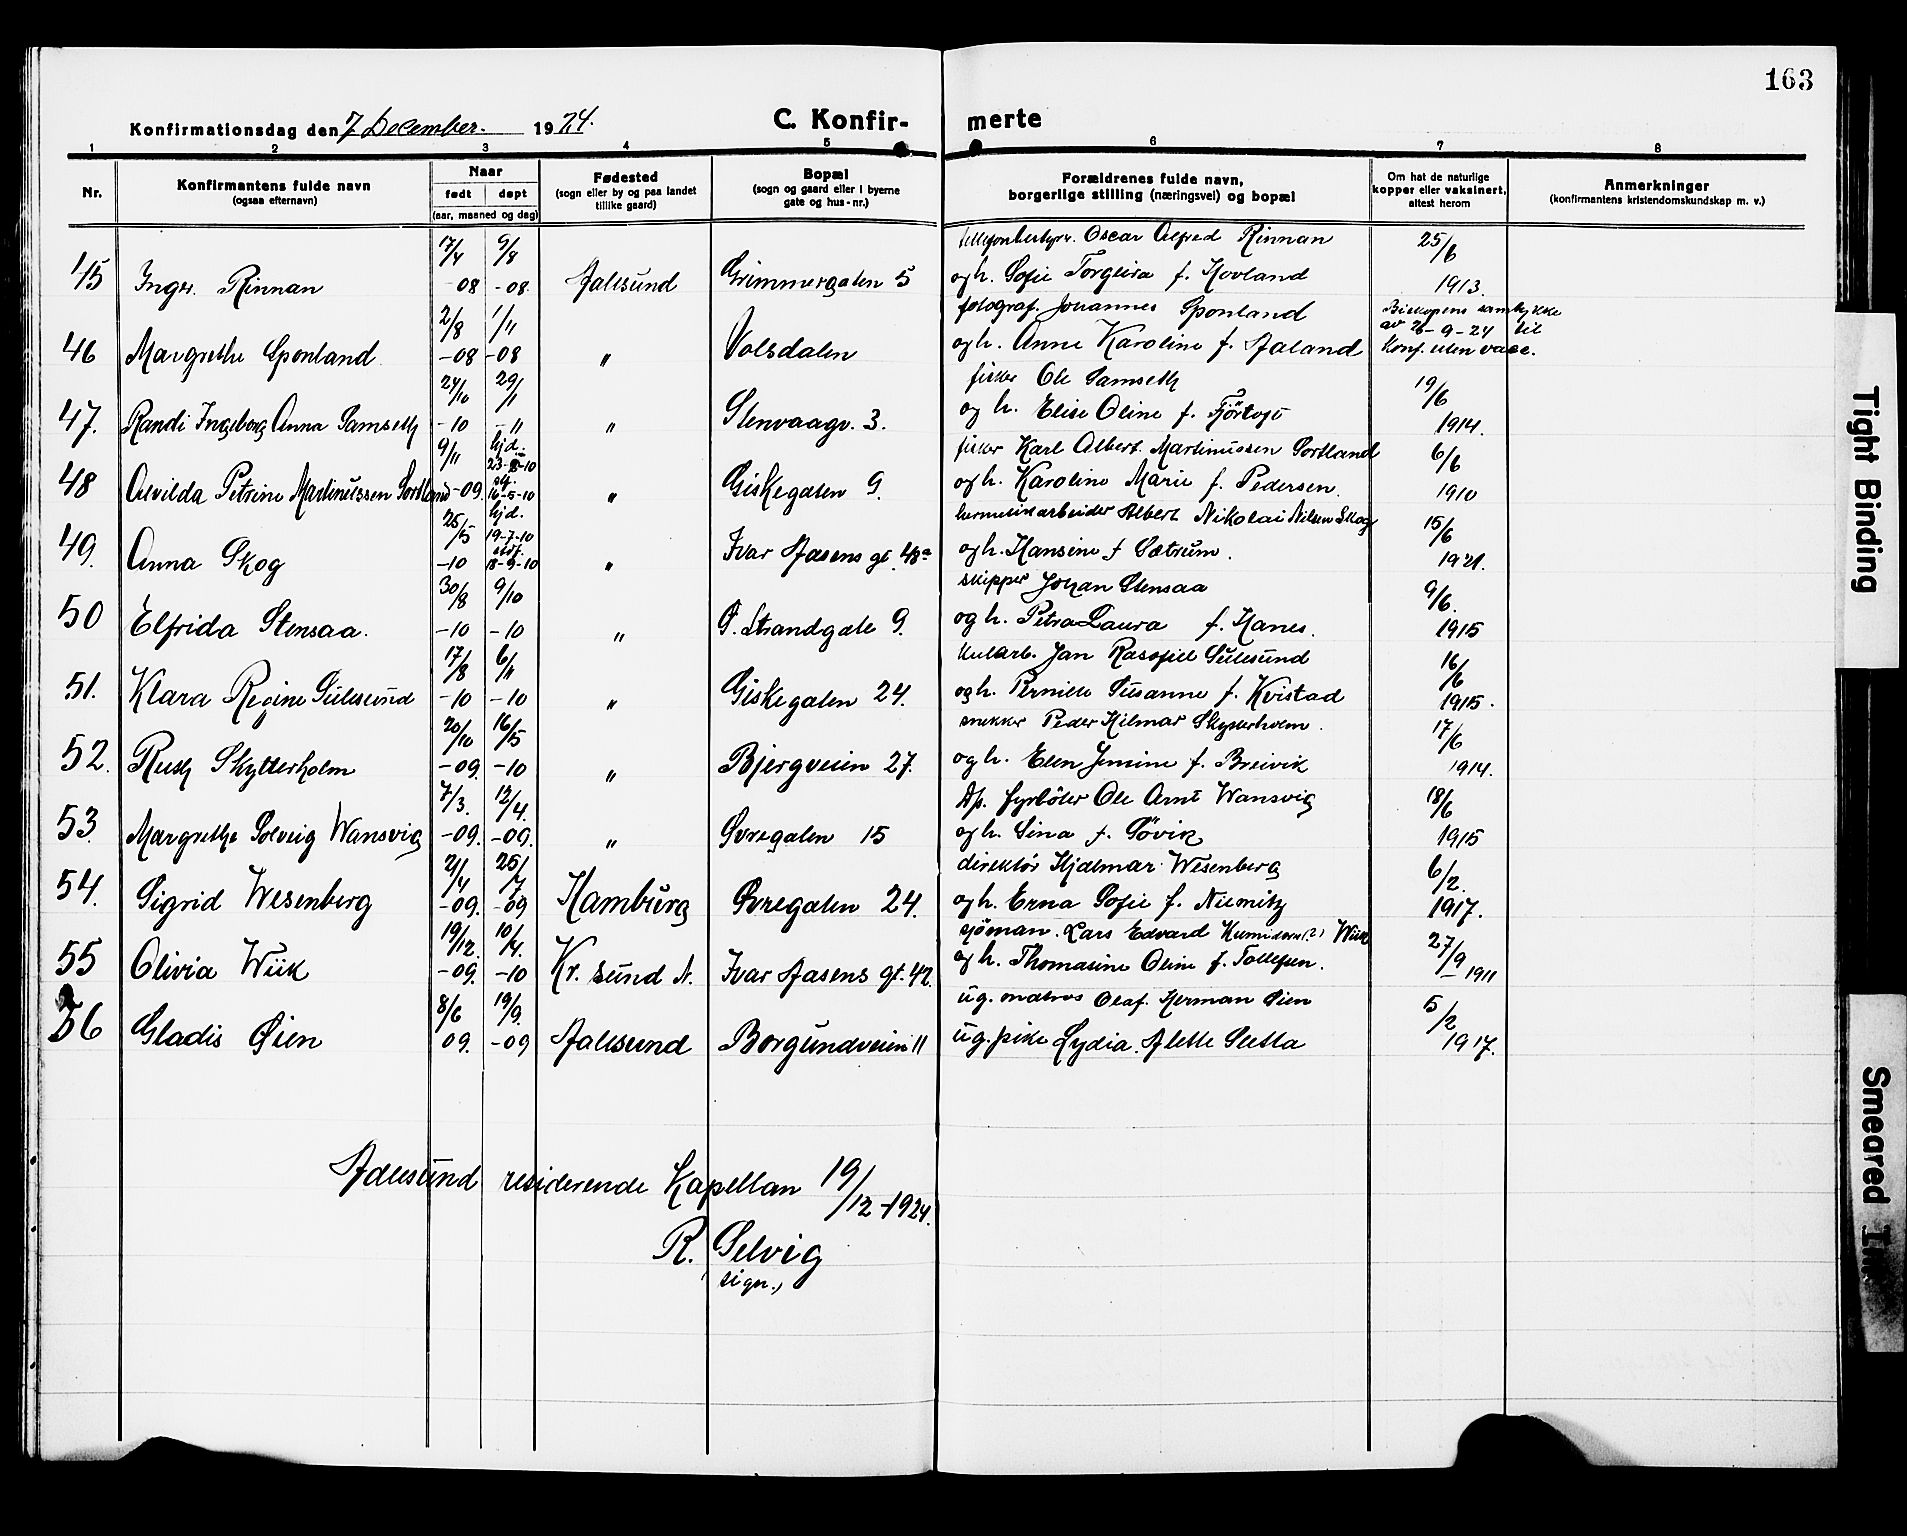 163
Konfirmationsdag den 7 December. 1924.
C. Konfir- merte
1 2 3 4 5 6 7 8
Nr.
Konfirmantens fulde navn
(ogsaa efternavn)
Naar
født døpt
(aar, maaned og dag)
Fødested
(sogn eller by og paa landet
tillike gaard)
Bopæl
(sogn og gaard eller i byerne
gate og hus-nr.)
Forældrenes fulde navn,
borgerlige stilling (næringsvei) og bopæl
Om hat de naturlige
kopper eller vaksinert,
attest herom
Anmerkninger
(konfirmantens kristendomskundskap m. v.)
17/4 9/8 Oscar Alfred Rinnan 25/6
45 Inger Rinnan -08 -08. Aalesund Grimmergaten 5 og h. Sofie Torgeira f. Hovland 1913.
2/8 1/11 fotograf. Johannes Sponland Biskopens samtykke
av 26-9-24 til
46 Margrethe Sponland -08 -08 " Volsdalen og h. Anne Karoline f. Aaland Konf. uten vacc.
24/10 29/1 fisker Ole Samseth 19/6
47. Randi Ingeborg Anna Samseth -10 -11 " Stenvaagv. 3. og h. Elise Oline f. Fjörtoft 1914.
9/11 hjd. 23-2-10 fisker Karl Albert Martinussen Sortland 6/6
48 Alvilda Petrine Martinussen Sortland -09. 16-5-10 " Giskegaten 9. og h. Karoline Marie f. Pedersen. 1910
25/5 hjd. 19-7-10 hermetikarbeider Albert Nikolai Nilsen Skog 15/6
49. Anna Skog -10 18-9-10 " Ivar Aasens gt. 48a og h. Hansine f. Sætrum. 1921.
30/8 9/10 skipper Johan Stensaa 9/6.
50 Elfrida Stensaa. -10 -10 " Ø. Strandgate 9. og h. Petra Laura f. Hanes. 1915
17/8 6/11 kularb. Jan Rasofiel Sulesund 16/6
51. Klara Regine Sulesund -10 -10 " Giskegaten 24. og h. Pernille Susanne f. Kvistad 1915.
20/10 16/5 snekker Peder Hilmar Skytterholm. 17/6
52. Ruth Skytterholm -09. -10 " Bjergveien 27. og h. Elen Jensine f. Breivik 1914.
7/3. 12/4. Ds. fyrböter Ole Arnt Wansvig 18/6
53. Margrethe Solveig Wansvig -09. -09. " Svregaten 15 og h. Sina f. Søvik 1915
2/4 25/7 direktør Hjalmar Wesenberg 6/2.
54. Sigrid Wesenberg -09. -09 Hamburg Øvregaten 24. og h. Erna Sofie f. Niemitz 1917.
19/12. 10/4. sjöman. Lars Edvard (?) Wiik 27/9
55 Olivia Wiik -09. -10 Kr. sund N. Ivar Aasens gt. 42. og h. Thomasine Oline f. Tollefsen. 1911
8/6 19/9. ug. matros Olaf Herman Øien 5/2
56 Gladis Øien 09. -09 Aalesund Borgundveien 11 ug. pike Lydia Alette Sletta 1917.
Aalesund residerende Kapellan 19/12-1924.
R. Selvig
(sign.)
Tight Binding
Smeared Ink